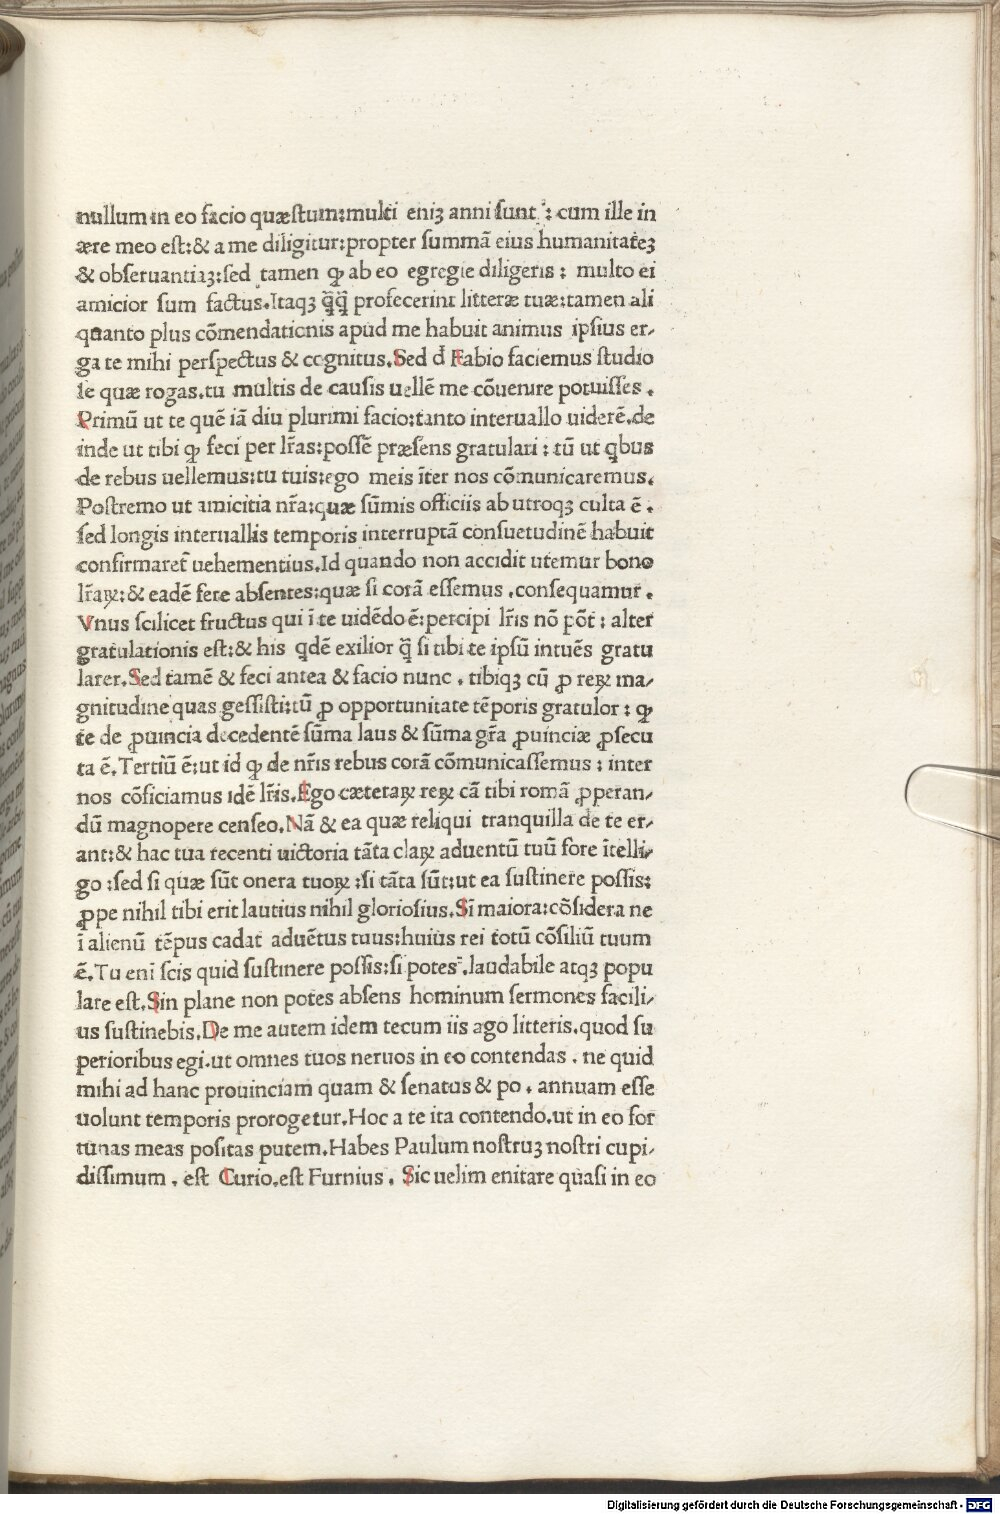 nullum in eo facio quæſtum:multi eniꝫ anni ſunt : cum ille in
ære meo eſt:& a me diligitur:propter ſummā eius humanitateꝫ
& obſeruantiaꝫ:ſed tamen ꝙ ab eo egregie diligeris : multo ei
amicior ſum factus.Itaqꝫ q̄q̄ profecerint litteræ tuæ:tamen ali
quanto plus cōmendationis apud me habuit animus ipſius er⸗
ga te mihi perſpectus & cognitus.Sed đ Fabio faciemus ſtudio
ſe quæ rogas.tu multis de cauſis uellē me cōuenire potuiſſes .
Primū ut te quē iā diu plurimi facio:tanto interuallo uiderē.de
inde ut tibi ꝙ feci per lr̄as:poſſē præſens gratulari : tū ut qbus
de rebus uellemus:tu tuis:ego meis īter nos cōmunicaremus.
Poſtremo ut amicitia nr̄a:quæ ſūmis officiis ab utroqꝫ culta ē .
ſed longis interuallis temporis interruptā conſuetudinē habuit
confirmaret̄ uehementius.Id quando non accidit utemur bono
lr̄aꝝ:& eadē fere abſentes:quæ ſi corā eſſemus .conſequamur .
Vnus ſcilicet fructus qui ī te uidēdo ē:percipi lr̄is nō pōt : alter
gratulationis eſt:& his qdē exilior q̄ ſi tibi te ipſū intuēs gratu
larer.Sed tamē & feci antea & facio nunc . tibiqꝫ cū ꝓ reꝝ ma⸗
gnitudine quas geſſiſti:tū ꝓ opportunitate tēporis gratulor : ꝙ
te de ꝓuincia decedentē ſūma laus & ſūma gr̄a ꝓuinciæ ꝓſecu
ta ē.Tertiū ē:ut id ꝙ de nr̄is rebus corā cōmunicaſſemus : inter
nos cōficiamus idē lr̄is.Ego cæteraꝝ reꝝ cā tibi romā ꝓperan⸗
dū magnopere cenſeo.Nā & ea quæ reliqui tranquilla de te er⸗
ant:& hac tua recenti uictoria tāta claꝝ aduentū tuū fore ītelli⸗
go :ſed ſi quæ ſūt onera tuoꝝ :ſi tāta ſūt:ut ea ſuſtinere poſſis:
ꝓpe nihil tibi erit lautius nihil glorioſius.Sī maiora:cōſidera ne
ī alienū tēpus cadat aduētus tuus:huius rei totū cōſiliū tuum
ē.Tu enī ſcis quid ſuſtinere poſſis:ſi potes .laudabile atqꝫ popu
lare eſt.Sin plane non potes abſens hominum ſermones facili⸗
us ſuſtinebis.De me autem idem tecum iis ago litteris.quod ſu
perioribus egi.ut omnes tuos neruos in eo contendas . ne quid
mihi ad hanc prouinciam quam & ſenatus & po . annuam eſſe
uolunt temporis prorogetur.Hoc a te ita contendo.ut in eo for
tunas meas poſitas putem.Habes Paulum noſtruꝫ noſtri cupi⸗
diſſimum . eſt Curio.eſt Furnius . Sic uelim enitare quaſi in eo
Digitalisierung gefördert durch die Deutsche Forschungsgemeinschaft - DFG